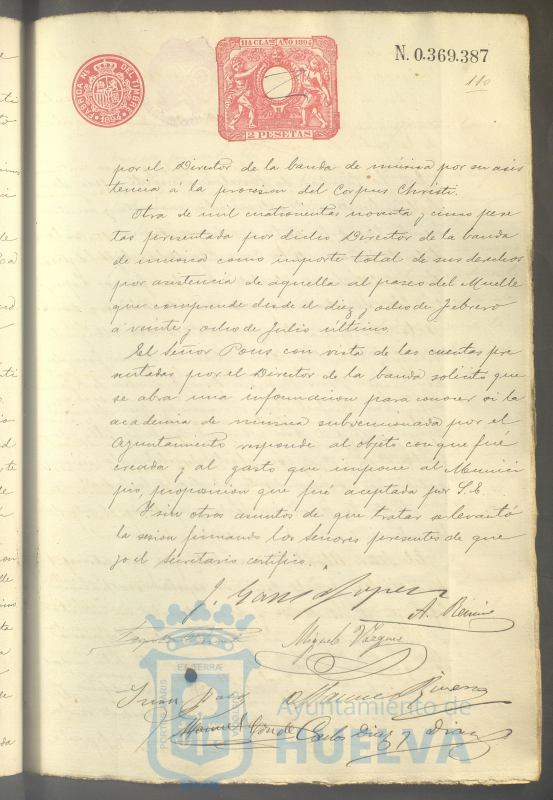 FABRICA NL. DEL TIMBRE
11A CLASE AÑO 1894
2 PESETAS
N. 0.369.387
110
por el Director de la banda de música por su asis
tencia á la procesion del Corpus Christi.
Otra de mil cuatrocientas noventa y cinco pese
tas presentada por dicho Director de la banda
de musica como importe total de sus derechos
por asistencia de aquella al paseo del Muelle
que comprende desde el diez y ocho de Febrero
á veinte y ocho de Julio último.
El Señor Pons, con vista de las cuentas pre
sentadas por el Director de la banda solicita que
se abra una informacion para conocer si la
academia de música subvencionada por el
Ayuntamiento responde al objeto con que fué
creada y al gasto que impone al Munici
pio, proposicion que fué aceptada por S.E.
Y sin otros asuntos de que tratar se levantó
la sesion firmando los Señores presentes de que
yo el Secretario certifico.
J. Lopez
A.
Miguel Vazquez
Juan Pons
Manuel Rivera
Manuel Conde
Carlos Diaz y Diaz
EX TERRÆ
PORTUS MARIS
CUSTODIA
Ayuntamiento de
HUELVA